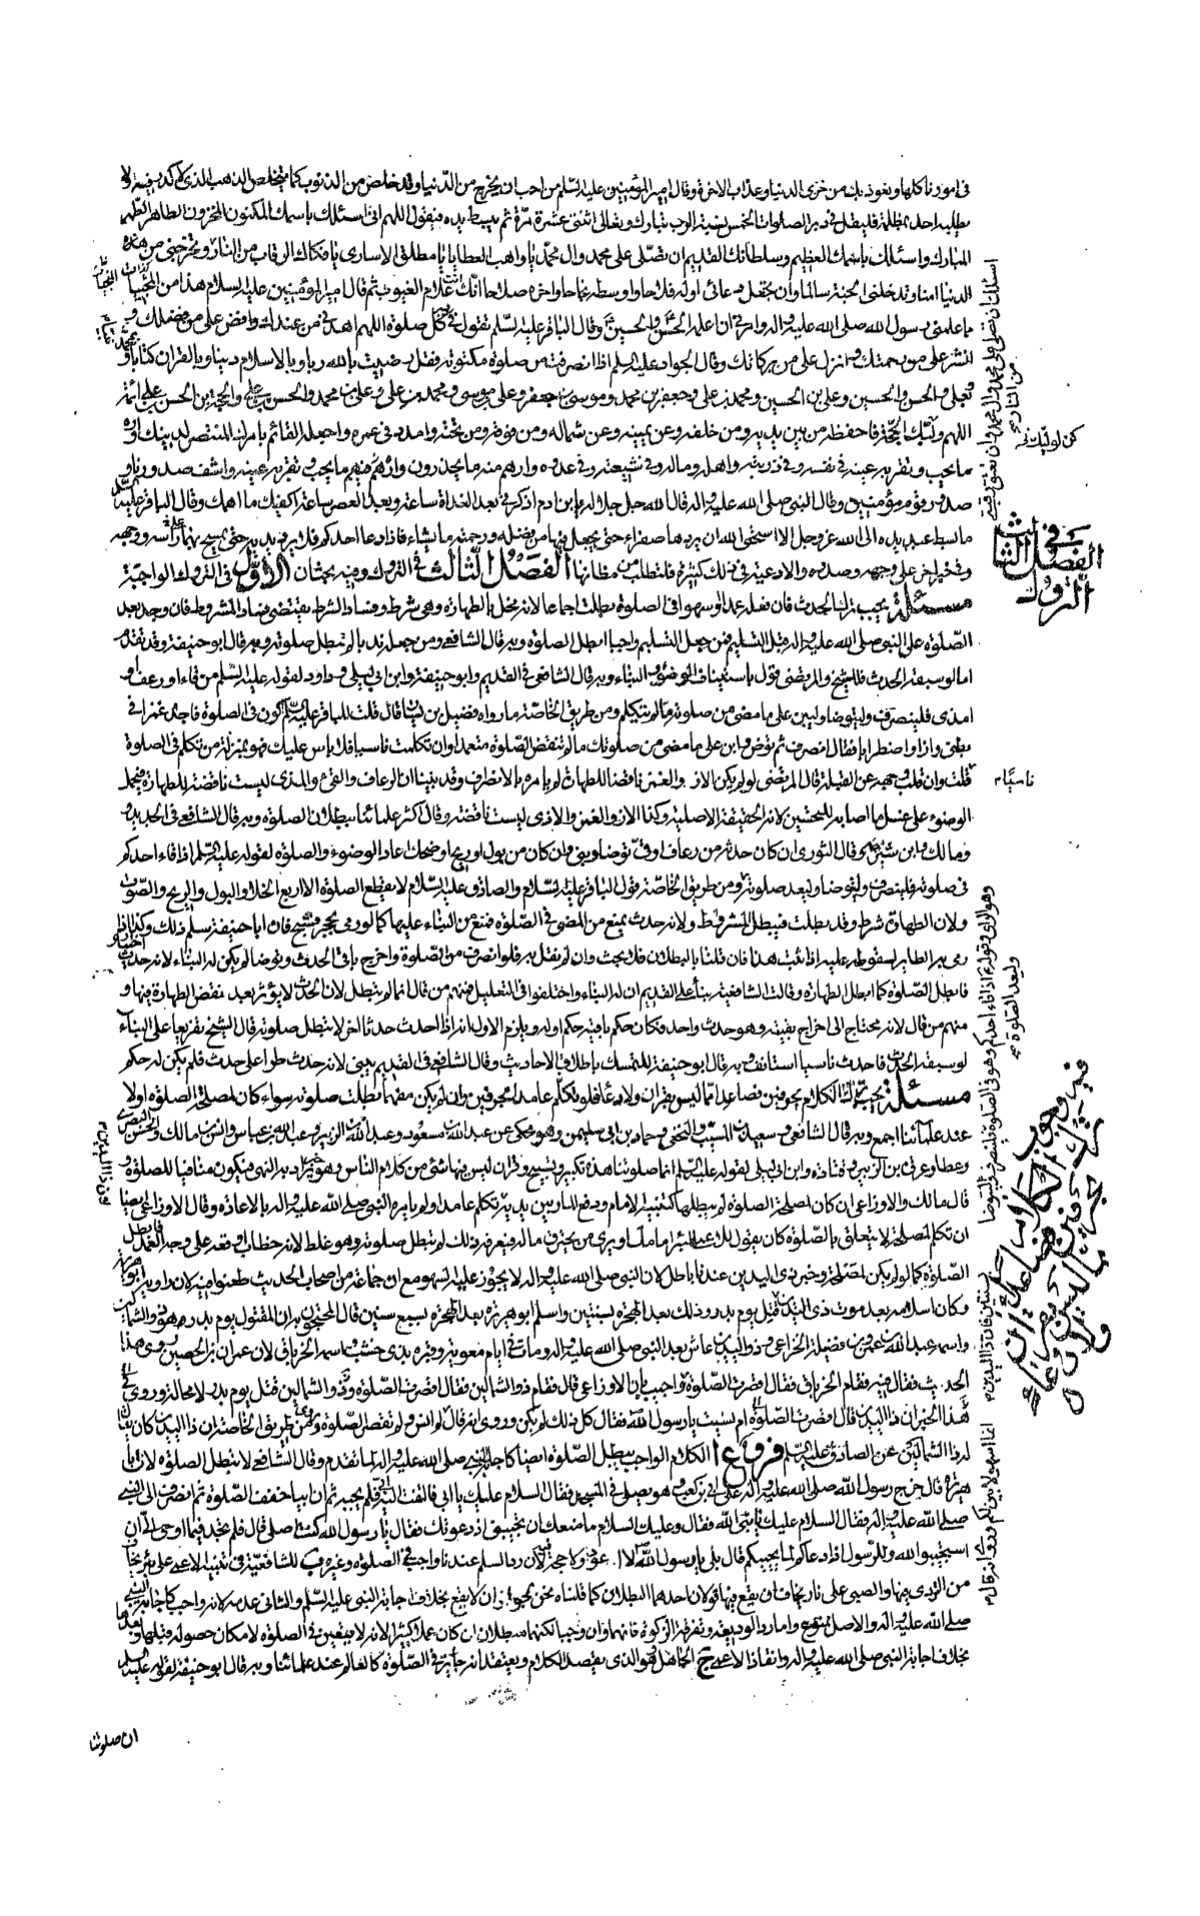 في امورنا كلها ونعوذ بك من خزى الدنيا وعذاب الاخرة وقال امير المؤمنين عليه السلام من احب ان يخرج من الدنيا وقد خلص من الذنوب كما يتخلص الذهب الذى لا كدر فيه ولا
يطلبه احد بمظلمة فليقل في دبر الصلوات الخمس نسبة الرب تبارك وتعالى اثنتى عشرة مرة ثم يبسط يده فيقول اللهم انى اسئلك باسمك المكنون المخزون الطاهر الطهر
المبارك واسئلك باسمك العظيم وسلطانك القديم ان تصلى على محمد وال محمد يا واهب العطايا يا مطلق الاسارى يا فكاك الرقاب من النار وتخرجنى من هذه
الدنيا امنا وتدخلنى الجنة سالما وان تجعل دعائى اوله فلاحا واوسطه نجاحا واخره صلاحا انك انت علام الغيوب ثم قال امير المؤمنين عليه السلام هذا من المخبيات
مما علمنى رسول الله صلى الله عليه واله وامرنى ان اعلمه الحسن والحسين وقال الباقر عليه السلم تقول في دبر كل صلوة اللهم اهدنى من عندك وافض على من فضلك و
انشر على من رحمتك وانزل على من بركاتك وقال الجواد عليه السلم اذا انصرفت من صلوة مكتوبة فقل رضيت بالله ربا وبالاسلام دينا وبالقران كتابا و
وبعلى والحسن والحسين وعلى بن الحسين ومحمد بن على وجعفر بن محمد وموسى بن جعفر وعلى بن موسى ومحمد بن على وعلى بن محمد والحسن بن على والحجة بن الحسن بن على ائمة
اللهم وليك الحجة فاحفظه من بين يديه ومن خلفه وعن يمينه وعن شماله ومن فوقه ومن تحته وامدد في عمره واجعله القائم بامرك المنتصر لدينك واره
ما يحب وتقر به عينه في نفسه وفي ذريته واهله وماله وفي شيعته وفي عدوه وارهم منه ما يحذرون واره فيهم ما يحب وتقر به عينه واشف صدورنا و
صدور قوم مؤمنين وقال النبي صلى الله عليه واله قال الله جل جلاله يا ابن ادم اذكرنى بعد الغداة ساعة وبعد العصر ساعة اكفيك ما اهمك وقال الباقر عليه السلم
ما بسط عبد يده الى الله عز وجل الا استحيى الله ان يردها صفراء حتى يجعل فيها من فضله ورحمته ما يشاء فاذا دعا احدكم فلا يرد يديه حتى يمسح بهما على راسه ووجهه
وفي خبر اخر على وجهه وصدره والادعية في ذلك كثيرة فلتطلب من مظانها الفصل الثالث في التروك وفيه بحثان الاول في التروك الواجبة
مسئلة يجب ترك الحدث فان فعل عمدا او سهوا في الصلوة بطلت اجماعا لانه مخل بالطهارة وهى شرط وفساد الشرط يقتضى فساد المشروط فان وجد بعد
الصلوة على النبي صلى الله عليه واله قبل التسليم فمن جعل التسليم واجبا ابطل الصلوة وبه قال الشافعى ومن جعله ندبا لم تبطل صلوته وبه قال ابو حنيفة وقد تقدم
اما لو سبقه الحدث فللشيخ والمرتضى قول باستيناف الوضوء والبناء وبه قال الشافعى في القديم وابو حنيفة وابن ابى ليلى وداود لقوله عليه السلم من قاء او رعف او
امذى فلينصرف وليتوضا وليبن على ما مضى من صلوته ما لم يتكلم ومن طريق الخاصة ما رواه فضيل بن يسار قال قلت للباقر عليه السلم اكون في الصلوة فاجد غمزا في
بطنى واذا واضطرابا فقال انصرف ثم توضا وابن على ما مضى من صلوتك ما لم تنقض الصلوة متعمدا وان تكلمت ناسيا فلا باس عليك فهو بمنزلة من تكلم في الصلوة
قلت وان قلب وجهه عن القبلة قال المرتضى لو لم يكن الاز والغمز ناقضا للطهارة لم يامره بالانصراف وقد بينا ان الرعاف والقئ والمذى ليست ناقضة للطهارة فيحمل
الوضوء على غسل ما اصابه للمجتنبين لانه الحقيقة الاصلية وكذا الاز والغمز والاذى ليست ناقضة وقال اكثر علمائنا ببطلان الصلوة وبه قال الشافعى في الجديد
ومالك وابن شبرمة وقال الثورى ان كان حدثه من رعاف او قئ توضا وبنى وان كان من بول او ريح او ضحك اعاد الوضوء والصلوة لقوله عليه السلم اذا قاء احدكم
في صلوته فلينصرف وليتوضا وليعد صلوته ومن طريق الخاصة قول الباقر عليه السلام والصادق عليه السلام لا يقطع الصلوة الا اربع الخلاء والبول والريح والصوت
ولان الطهارة شرط وقد بطلت فيبطل المشروط ولانه حدث يمنع من المضى في الصلوة فمنع من البناء عليها كما لو رمى بحجر فشج فان ابا حنيفة سلم ذلك وكذا لو
رمى به الطاير لسقوطه عليه اذا ثبت هذا فان قلنا بالبطلان فلا بحث وان لم نقل به فلو انصرف من الصلوة واخرج باقى الحدث وتوضا لم يكن له البناء لانه حدث
فابطل الصلوة كما ابطل الطهارة وقالت الشافعية بناء على القديم ان له البناء واختلفوا في التعليل فمنهم من قال انما لم يبطل لان الحدث لا يؤثر بعد نقض الطهارة فيها و
منهم من قال لانه يحتاج الى اخراج بقيته وهو حدث واحد فكان حكم باقيه حكم اوله ويلزم الاول انه اذا احدث حدثا اخر لا تبطل صلوته قال الشيخ تفريعا على البناء
لو سبقه الحدث فاحدث ناسيا استانف وبه قال ابو حنيفة للتمسك باطلاق الاحاديث وقال الشافعى في القديم يبنى لانه حدث طرا على حدث فلم يكن له حكم
مسئلة يجب ترك الكلام بحرفين فصاعدا مما ليس بقران ولا دعاء فلو تكلم عامدا بحرفين وان لم يكن مفهما بطلت صلوته سواء كان لمصلحة الصلوة او لا
عند علمائنا اجمع وبه قال الشافعى وسعيد بن المسيب والنخعى وحماد بن ابى سليمن وهو محكى عن عبد الله بن مسعود وعبد الله بن الزبير وعبد الله بن عباس وانس بن مالك والحسن البصرى
وعطا وعروة بن الزبير وقتادة وابن ابى ليلى لقوله عليه السلم انما صلوتنا هذه تكبير وتسبيح وقران ليس فيها شئ من كلام الناس وهو خبر يراد به النهى فيكون منافيا للصلوة و
قال مالك والاوزاعى ان كان لمصلحة الصلوة لم يبطلها كتنبيه الامام ودفع المار بين يديه تكلم عامدا ولم يامره النبي صلى الله عليه واله بالاعادة وقال الاوزاعى ايضا
ان تكلم لمصلحة لا يتعلق بالصلوة كان يقول لمن
الصلوة كما لو لم يكن لمصلحة وخبر ذى اليدين عندنا باطل لان النبي صلى الله عليه واله لا يجوز عليه السهو مع ان جماعة من اصحاب الحديث طعنوا فيه لان راويه ابو هريرة
وكان اسلامه بعد موت ذى اليدين قتل يوم بدر وذلك بعد الهجرة بسنتين واسلم ابو هريرة بعد الهجرة بسبع سنين قال المحتج به ان المقتول يوم بدر هو ذو الشمالين
واسمه عبد الله بن عمرو بن فضيلة الخزاعى وذو اليدين عاش بعد النبي صلى الله عليه واله ومات في ايام معوية وقبره بذى خشب واسمه الخرباق لان عمران بن الحصين روى هذا
الحديث فقال فيه فقام الخرباق فقال اقصرت الصلوة واجيب بان الاوزاعى قال فقام ذو الشمالين فقال اقصرت الصلوة وذو الشمالين قتل يوم بدر لا محالة وروى في
هذا الخبر ان ذا اليدين قال اقصرت الصلوة ام نسيت يا رسول الله فقال كل ذلك لم يكن وروى انه قال لم انس ولم تقصر الصلوة ومن طريق الخاصة ان ذا اليدين كان يقال
له ذا الشمالين عن الصادق عليه السلم فروع ا الكلام الواجب يبطل الصلوة ايضا كاجابة النبي صلى الله عليه واله لما تقدم وقال الشافعى لا تبطل الصلوة لان ابا
هريرة قال خرج رسول الله صلى الله عليه واله على ابى بن كعب وهو يصلى في المسجد فقال السلام عليك يا ابى فالتفت اليه ابى فلم يجبه ثم ان ابيا خفف الصلوة ثم انصرف الى النبي
صلى الله عليه واله فقال السلام عليك يا نبي الله فقال وعليك السلام ما منعك ان تجيبنى اذ دعوتك فقال يا رسول الله كنت اصلى قال فلم تجد فيما اوحى الى ان
استجيبوا لله وللرسول اذا دعاكم لما يحييكم قال بلى يا رسول الله لا اعود ولا حجة فيه لان رد السلم عندنا واجب في الصلوة وغيره ب للشافعية في تنبيه الاعمى على بئر يخاف
من التردى فيها والصبى على نار يخاف ان يقع فيها قولان احدهما البطلان كما قلناه نحن
صلى الله عليه واله والاصل ممنوع واما رد الوديعة وتفرقة الزكوة فانهما وان وجبا لكنهما مبطلان ان كان عملا كثيرا لانه لا يتعين في الصلوة لامكان حصوله قبلها وبعدها
بخلاف اجابة النبي صلى الله عليه واله وانقاذ الاعمى ج الجاهل هو الذى يقصد الكلام ويعتقد انه جايز في الصلوة كالعالم عند علمائنا وبه قال ابو حنيفة لقوله عليه السلم
اسئلك ان تصلى على محمد وال محمد وان تعتق رقبتى
من النار
كن لوليك في
في الفصل الثالث
التروك
ناسيا م
وليعد الصلوة
ان صلوتنا